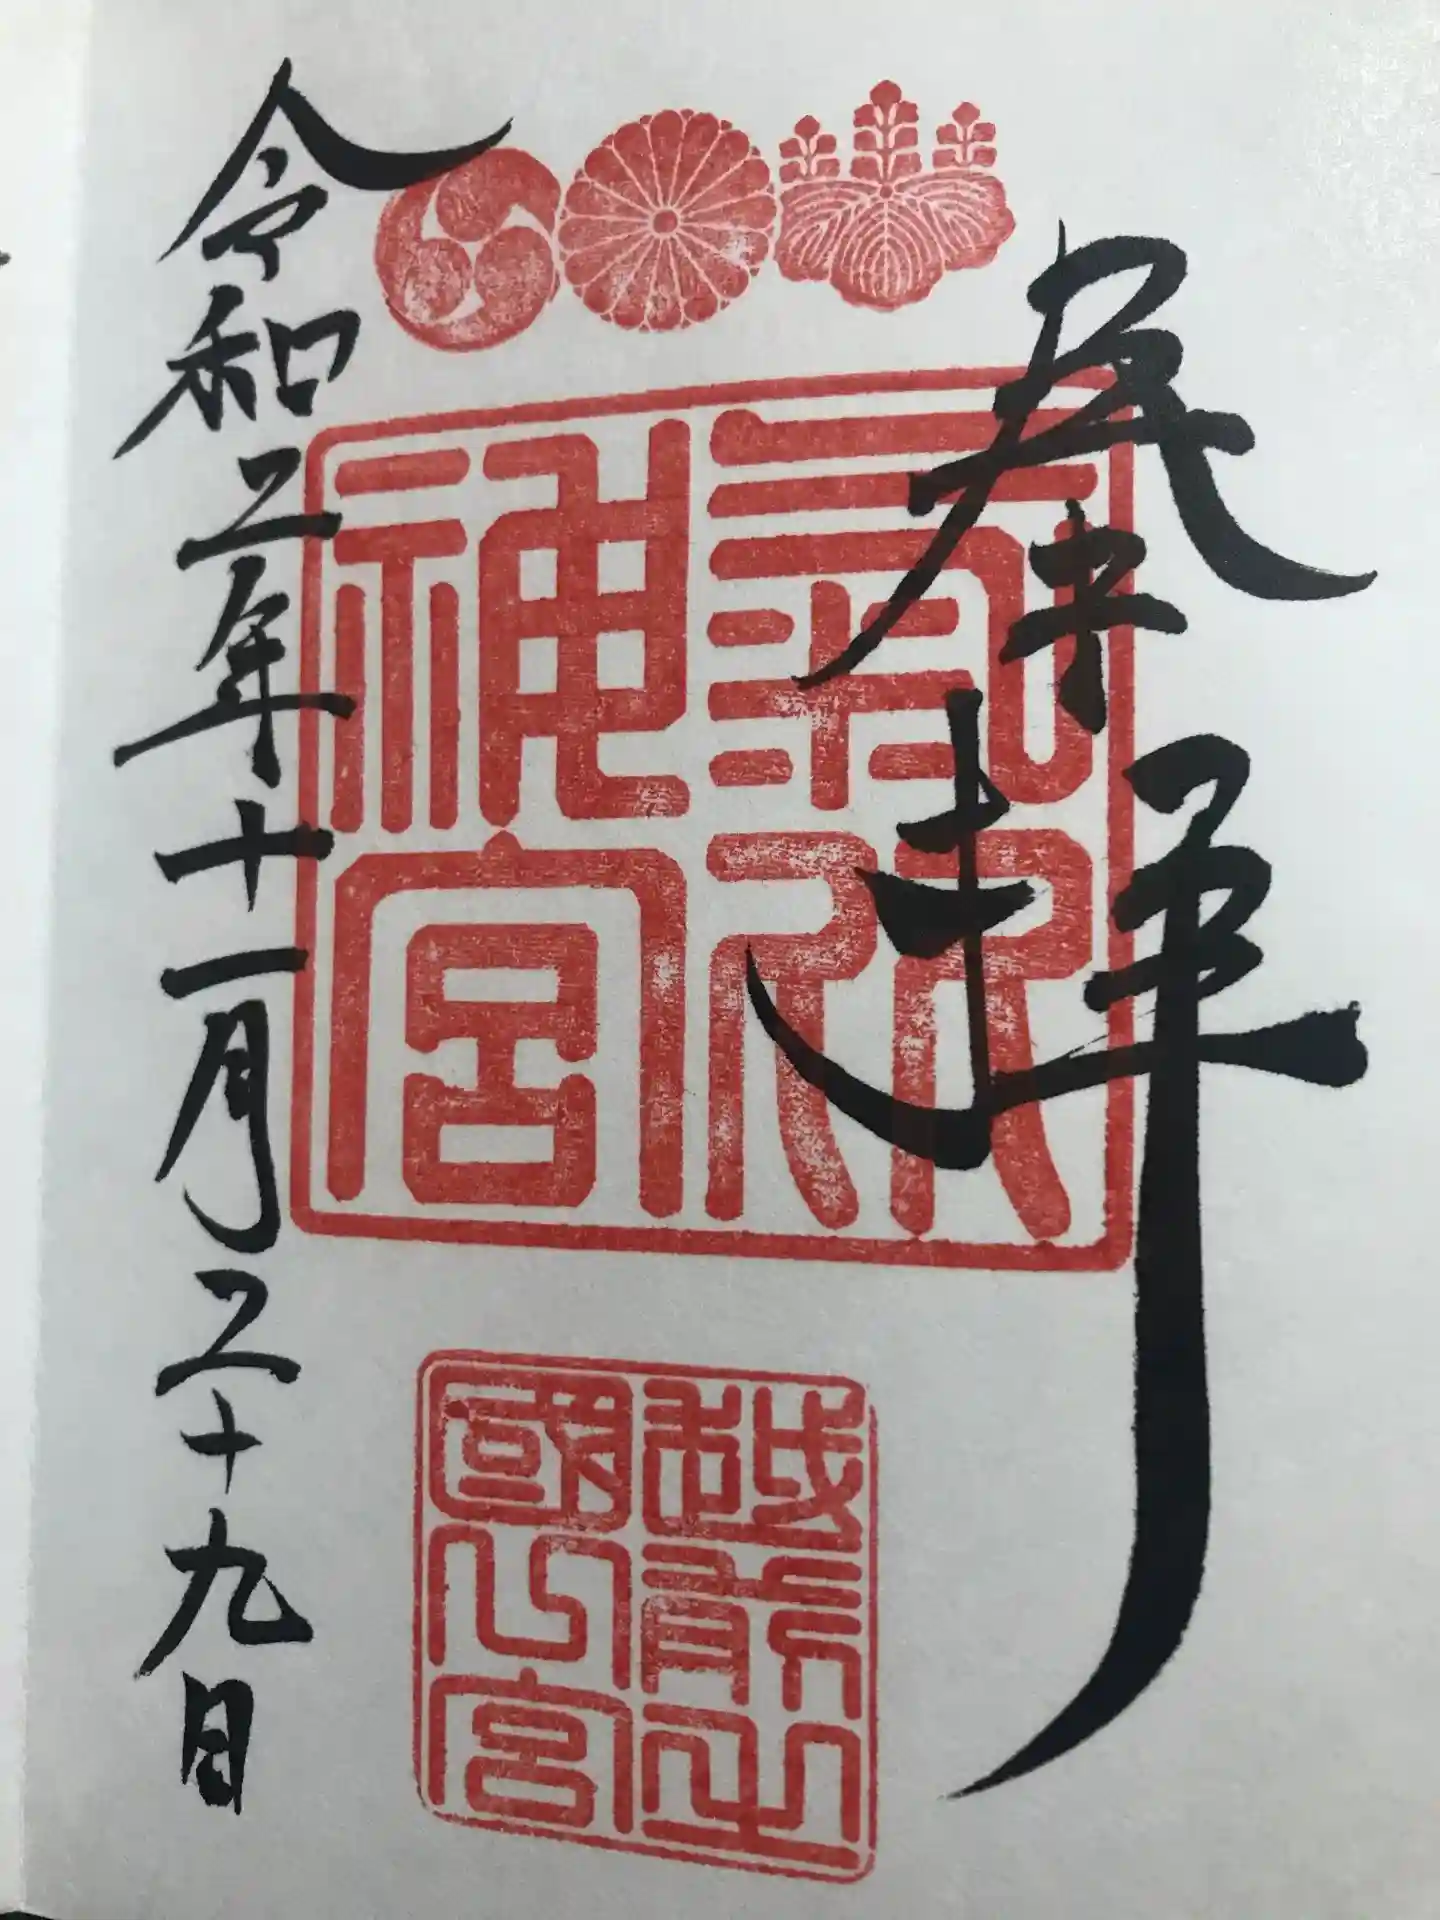 奉拝
氣比
神宮
越前之
國一宮
令和二年十一月二十九日